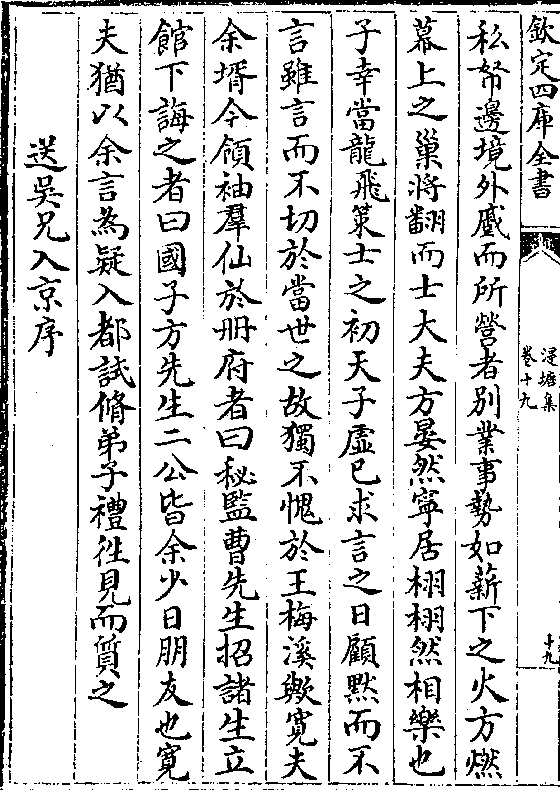 欽定四庫全書
漫塘集
卷十九
十九
私帑邊境外慼而所營者別業事勢如薪下之火方燃
幕上之巢將翻而士大夫方晏然寧居栩栩然相樂也
子幸當龍飛策士之初天子虛己求言之日顧黙而不
言雖言而不切於當世之故獨不愧於王梅溪歟寛夫
余壻今領袖羣仙於册府者曰秘監曹先生招諸生立
館下誨之者曰國子方先生二公皆余少日朋友也寛
夫猶以余言為疑入都試脩弟子禮徃見而質之
送吳兄入京序